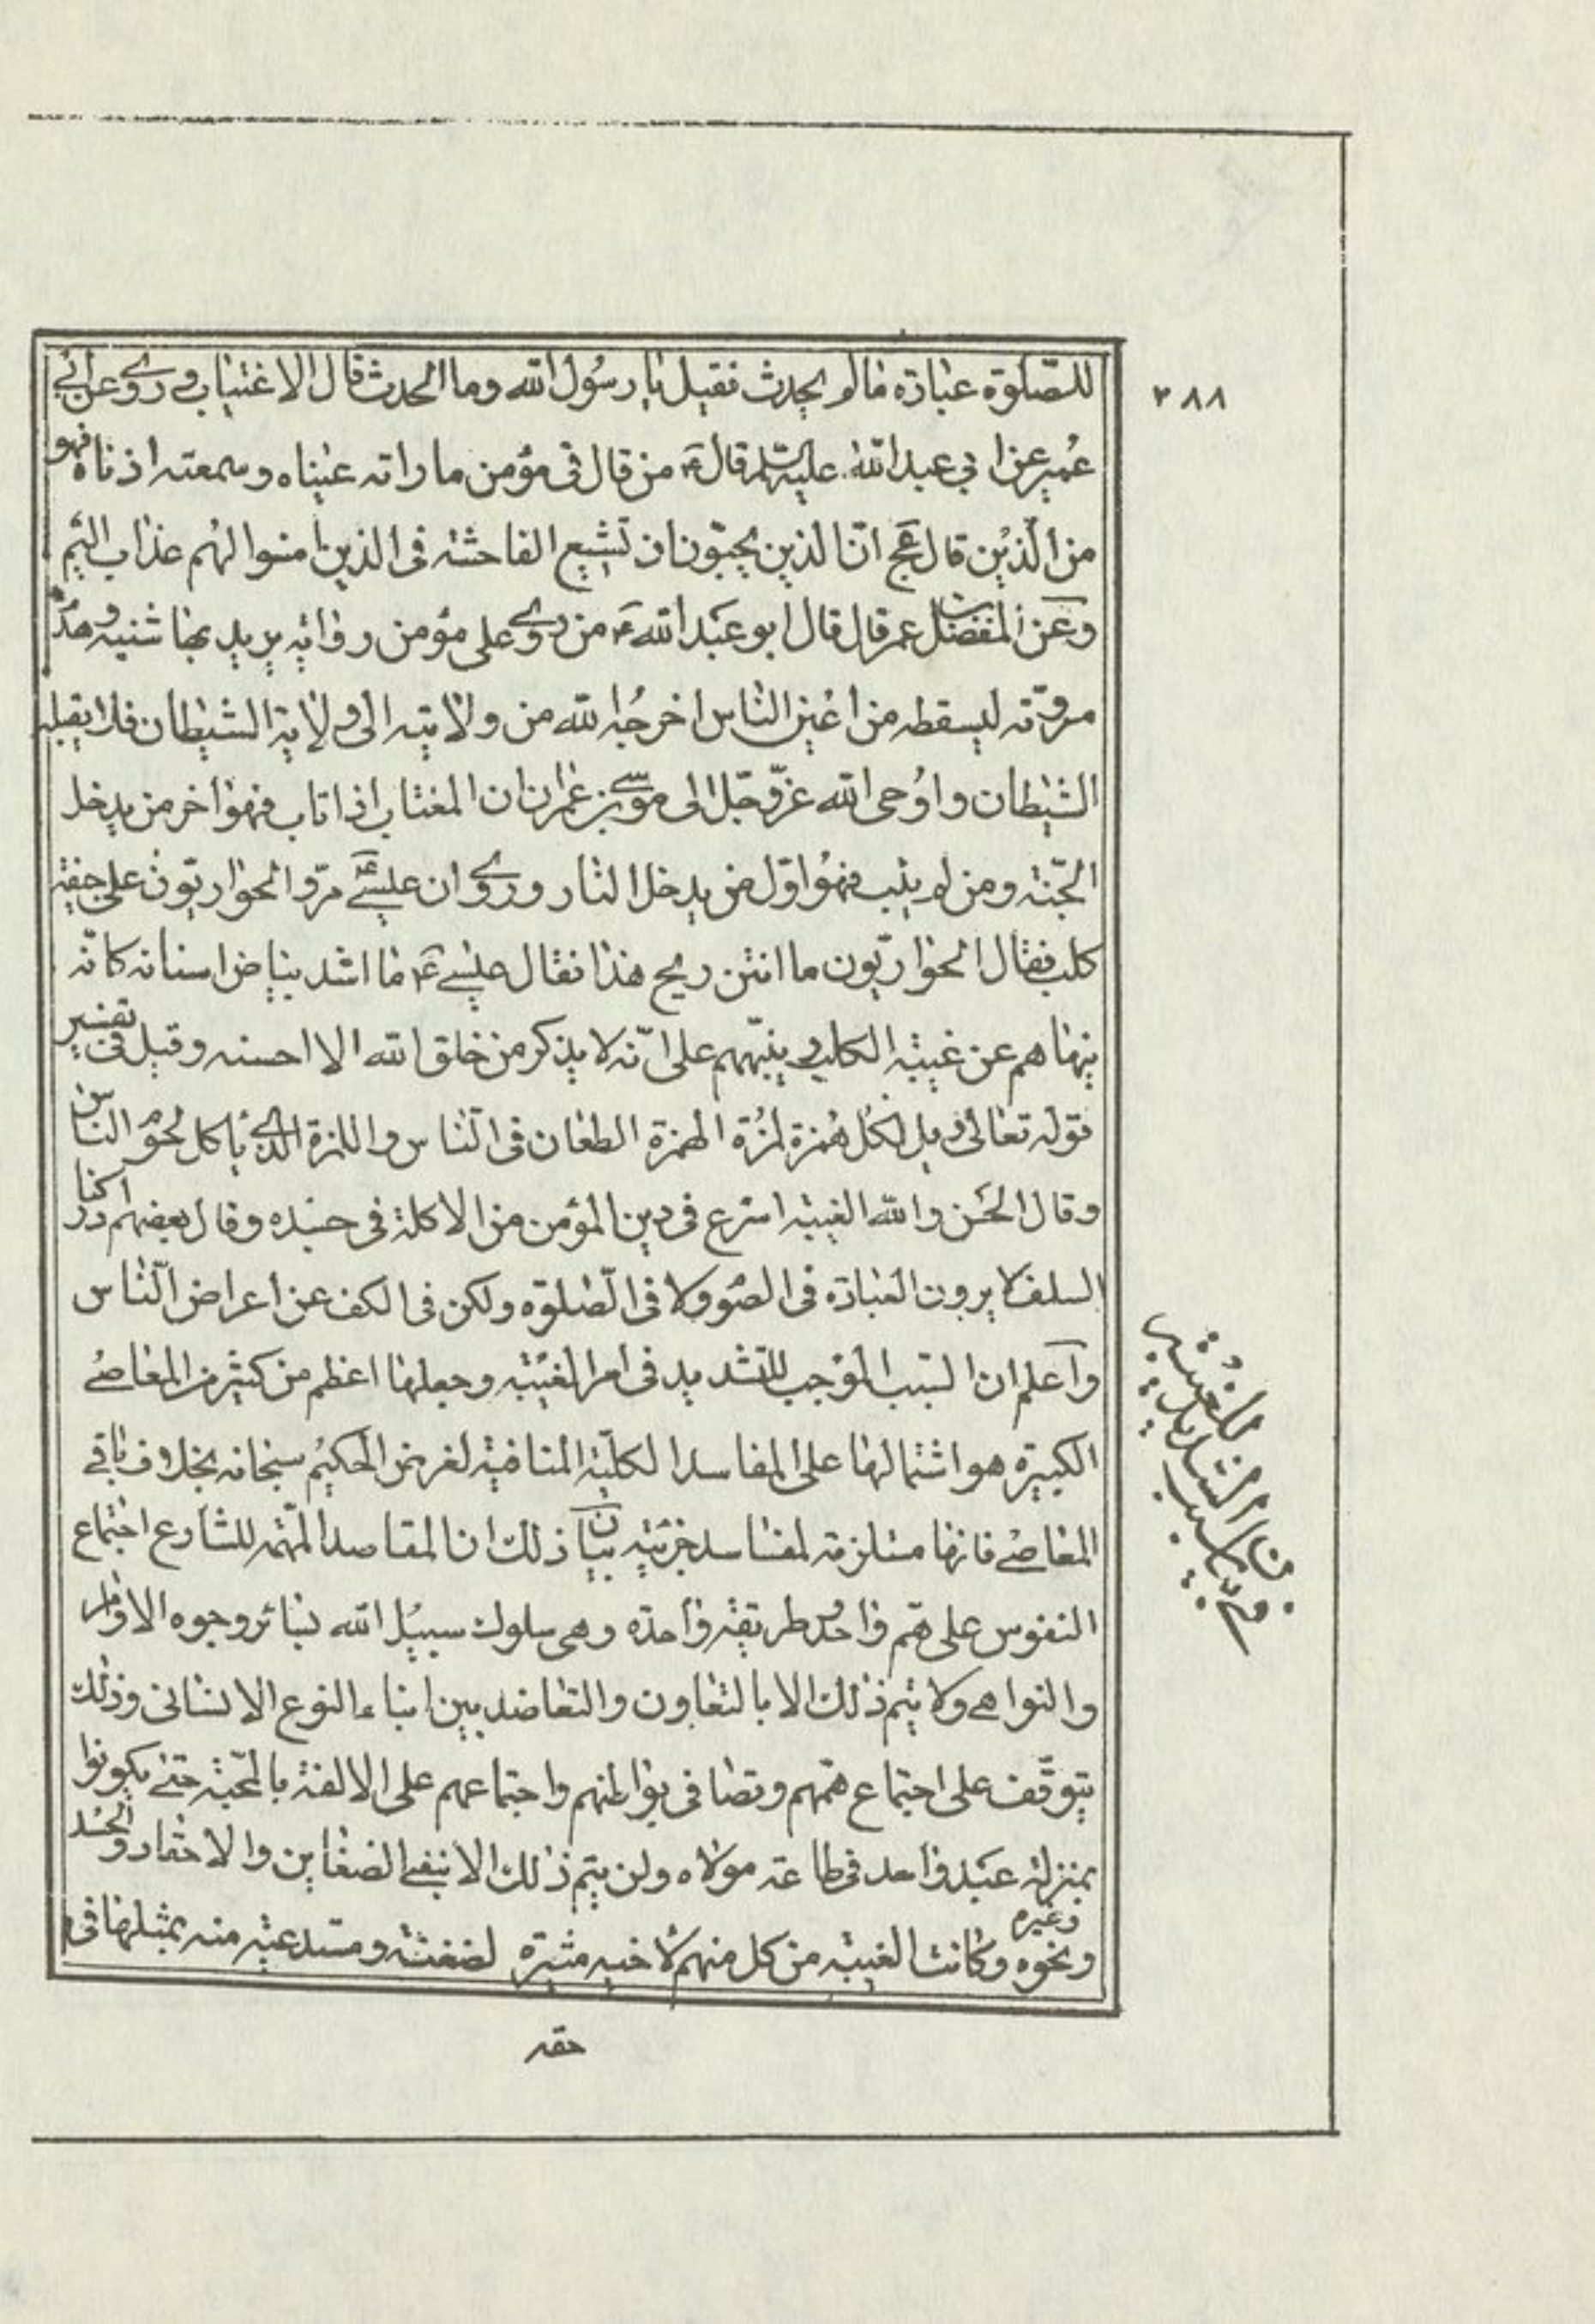 ٢٨٨
للصّلوة عبادة ما لم يحدث فقيل يا رسول الله وما الحدث قال الاغتياب وروى عن ابي
عمير عن ابي عبد الله عليه السلم قال ع من قال في مؤمن ما راته عيناه وسمعته اذناه فهو
من الذين قال عج انّ الذين يحبّون ان تشيع الفاحشة في الذين امنوا لهم عذاب اليم
وعن المفضل بن عمر قال قال ابو عبد الله ع من روى على مؤمن رواية يريد بها شنيه وهدم
مروّته ليسقطه من اعين الناس اخرجه الله من ولايته الى ولاية الشيطان فلا يقبله
الشيطان واوحى الله عزّ وجّل الى موسى بن عمران ان المغتاب اذا تاب فهو اخر من يدخل
الجنّة ومن لم يتب فهو اوّل من يدخل النار وروى ان عيسى ع مرّ والحواريّون على جيفة
كلب فقال الحواريّون ما انتن ريح هذا فقال عيسى ع ما اشد بياض اسنانه كانّه
ينهاهم عن غيبة الكلب وينبّههم على انّه لا يذكر من خلق الله الا احسنه وقيل في تفسير
قوله تعالى ويل لكل همزة لمزة الهمزة الطعان في النّاس واللمزة الذي ياكل لحوم الناس
وقال الحسن والله الغيبة اسرع في دين المؤمن من الاكلة في جسده وقال بعضهم ادركنا
السلف لا يرون العبادة في الصوم ولا في الصّلوة ولكن في الكف عن اعراض النّاس
واعلم ان السّبب الموجب للتشديد في امر الغيبة وجعلها اعظم من كثير من المعاصي
الكبيرة هو اشتمالها على المفاسد الكليّة المنافية لغرض الحكيم سبحانه بخلاف باقي
المعاصي فانها مستلزمة لمفاسد جزئية بيان ذلك ان المقاصد المهّمه للشارع اجتماع
النفوس على همّ واحد وطريقة واحدة وهي سلوك سبيل الله بسائر وجوه الاوامر
والنواهي ولا يتم ذلك الا بالتعاون والتعاضد بين ابناء النوع الانساني وذلك
يتوقّف على اجتماع هممهم وتصافي بواطنهم واجتماعهم على الالفة بالمحبّة حتى يكونوا
بمنزلة عبد واحد في طاعة مولاه ولن يتم ذلك الا بنفي الضغاين والاحقاد والحسد
ونحوه وغيره وكانت الغيبة من كل منهم لاخيه مثيرة لضغنته ومستدعية منه بمثلها في
حقه